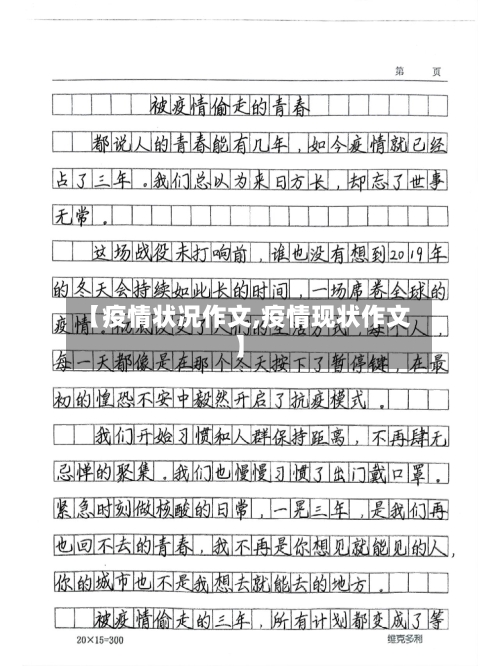 第 页
被疫情偷走的青春
都说人的青春能有几年，如今疫情就已经
占了三年。我们总以为来日方长，却忘了世事
无常。
这场战役未打响前，谁也没有想到2019年
的冬天会持续如此长的时间，一场席卷全球的
【疫情状况作文,疫情现状作文
】
疫情。
每一天都像是在那个冬天按下了暂停键，在最
初的惶恐不安中毅然开启了抗疫模式。
我们开始习惯和人群保持距离，不再肆无
忌惮的聚集。我们也慢慢习惯了出门戴口罩。
紧急时刻做核酸的日常，一晃三年，是我们再
也回不去的青春，我不再是你想见就能见的人，
你的城市也不是我想去就能去的地方。
被疫情偷走的三年，所有计划都变成了等
20×15=300 维克多利